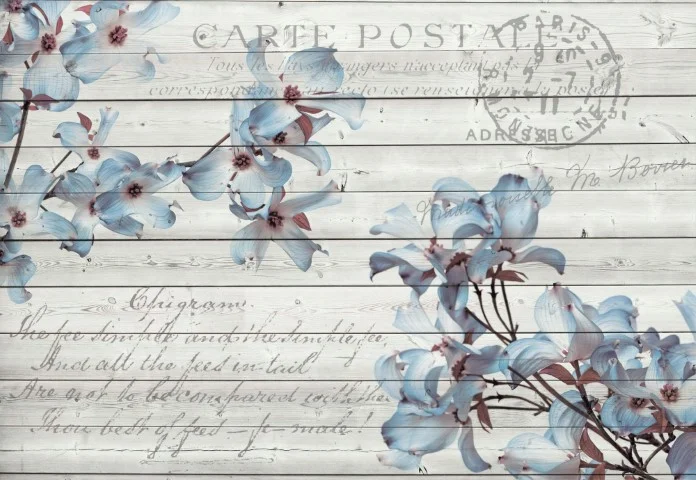 CARTE POSTALE
Tous les pays étrangers n'acceptant pas la
correspondance au recto (se renseigner à la poste)
PARIS
ADRESSE
Epigram.
The fee simple and the simple fee,
And all the fees in tail
Are not to be compared with thee
Thou best of fees – fe-male!